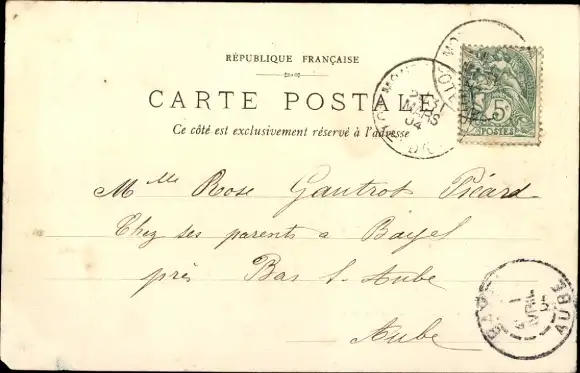 RÉPUBLIQUE FRANÇAISE
CARTE POSTALE
Ce côté est exclusivement réservé à l'adresse
5c
POSTES
MARS
04
Mlle Rose Gautrot Picard
Chez ses parents à Bayel
près Bar s. Aube
Aube
1
AVRIL
AUBE